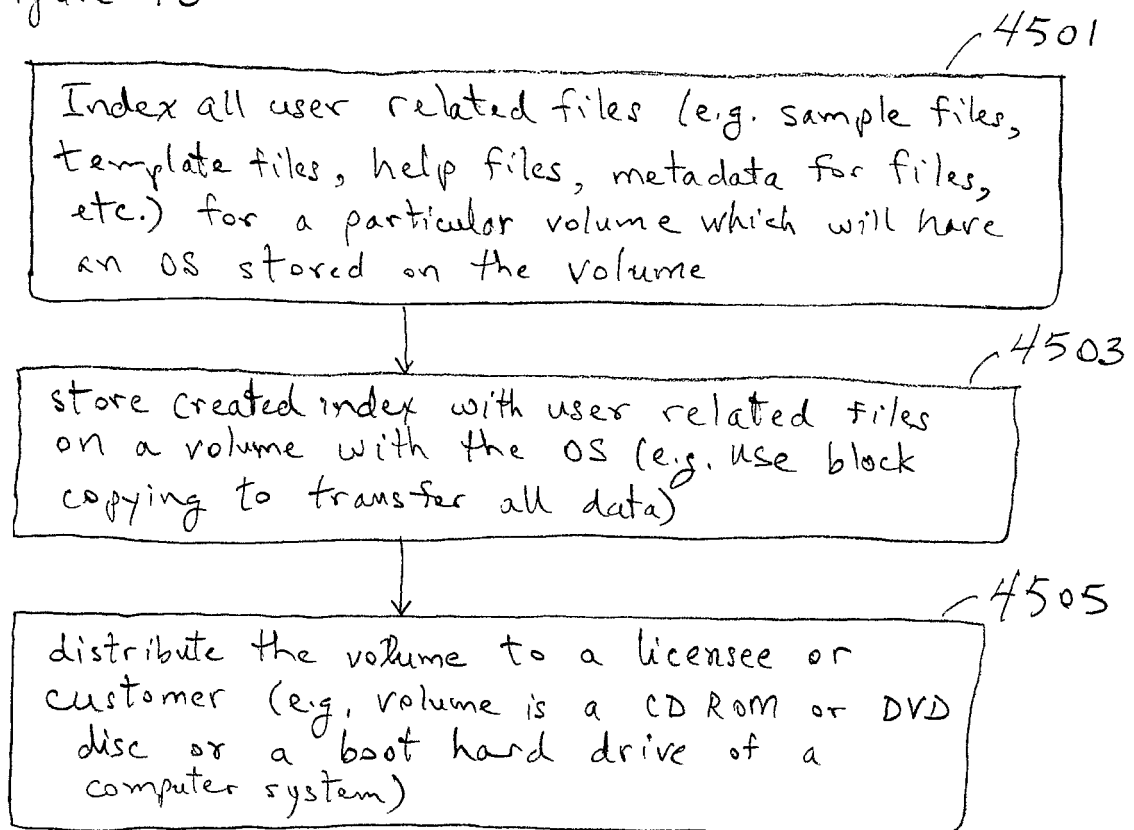 4501
Index all user related files (e.g. sample files,
template files, help files, metadata for files,
etc.) for a particular volume which will have
an OS stored on the volume
4503
store created index with user related files
on a volume with the OS (e.g. use block
copying to transfer all data)
4505
distribute the volume to a licensee or
customer (e.g, volume is a CD ROM or DVD
disc or a boot hard drive of a
computer system)